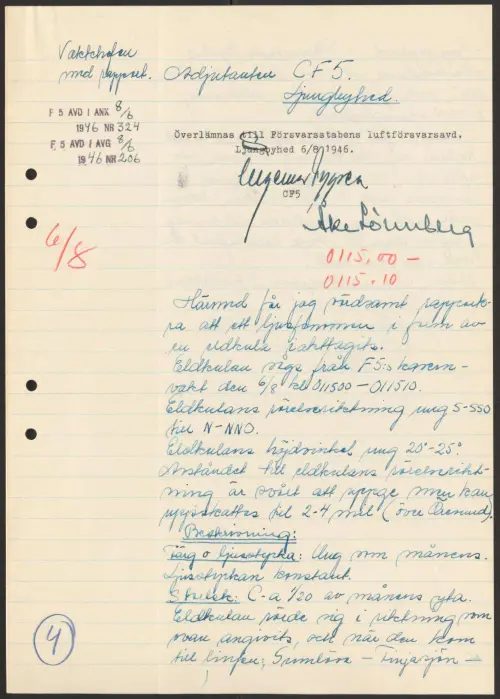 Vaktchefen
med rapport.
Adjutanten CF5.
Ljungbyhed.
F 5 AVD I ANK 8/8
1946 NR 324
F 5 AVD I AVG 8/8
1946 NR 206
Överlämnas till Försvarsstabens luftförsvarsavd.
Ljungbyhed 6/8 1946.
CF5
6/8
0115.00 -
0115.10
Härmed får jag vördsamt rapporte-
ra att ett ljusfenomen i form av
en eldkula iakttagits.
Eldkulan sågs från F5:s kasern-
vakt den 6/8 kl 011500 - 011510.
Eldkulans rörelseriktning ung S-SSO
till N-NNO.
Eldkulans höjdvinkel ung 20°-25°.
Avståndet till eldkulans rörelserikt-
ning är svårt att uppge men kan
uppskattas till 2-4 mil (över Öresund).
Beskrivning:
Färg o ljusstyrka: Ung som månens.
Ljusstyrkan konstant.
Storlek: C-a 1/20 av månens yta.
Eldkulan rörde sig i riktning som
ovan angivits, och när den kom
till linjen: - Finjasjön -
4